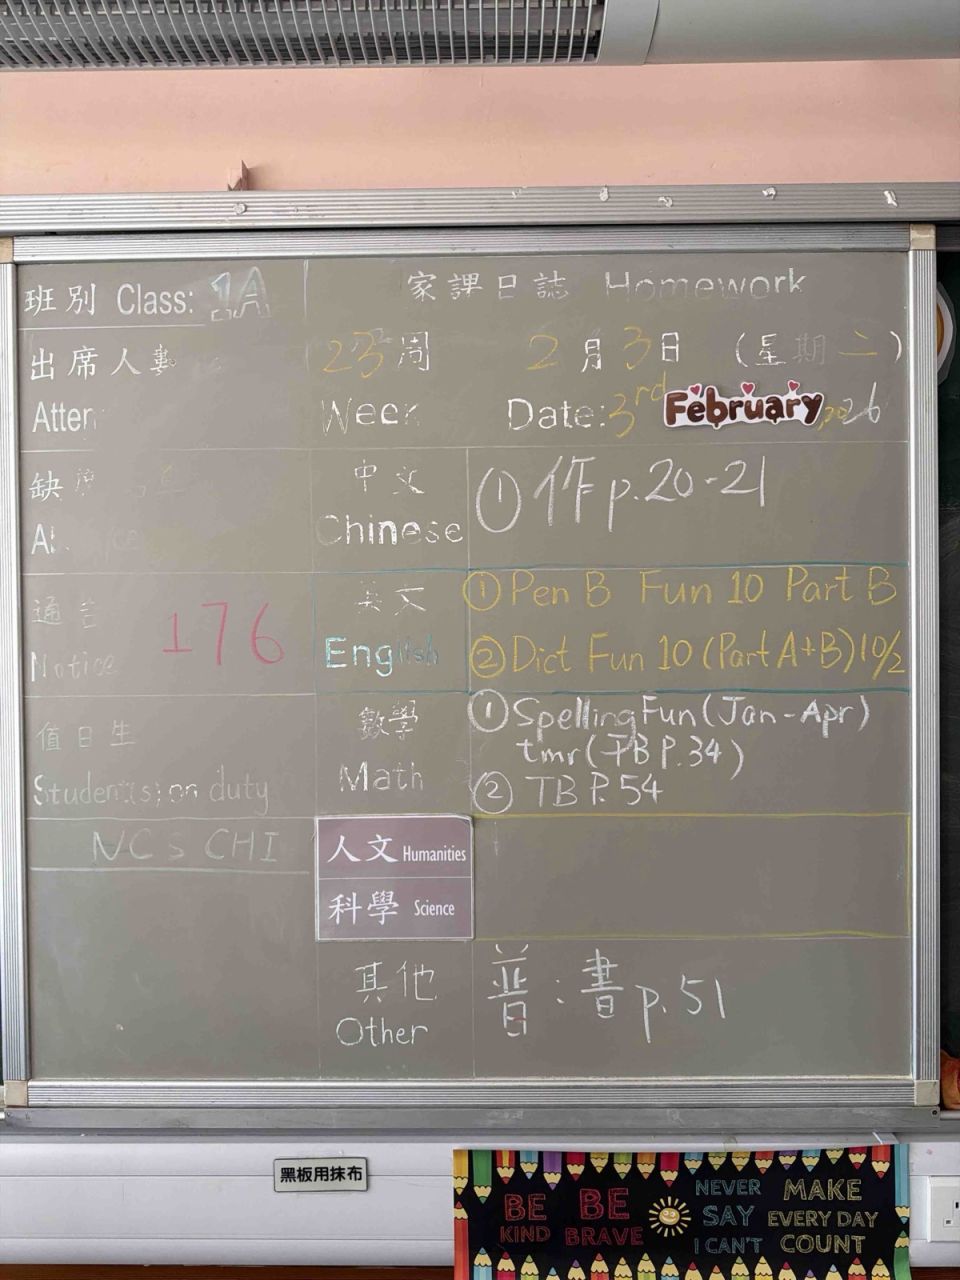 班別 Class: 1A
家課日誌 Homework
出席人數
23周
2月3日 (星期二)
Atten
Week
Date: 3rd February, 2026
缺席
中文
① 作 p.20-21
Chinese
通告
176
英文
① Pen B Fun 10 Part B
Notice
English
② Dict Fun 10 (Part A+B) 10/2
值日生
數學
① Spelling Fun (Jan-Apr)
tmr (TB P.34)
Student(s) on duty
Math
② TB P.54
NCS CHI
人文 Humanities
科學 Science
其他
普:書 p.51
Other
黑板用抹布
BE KIND
BE BRAVE
NEVER SAY I CAN'T
MAKE EVERY DAY COUNT